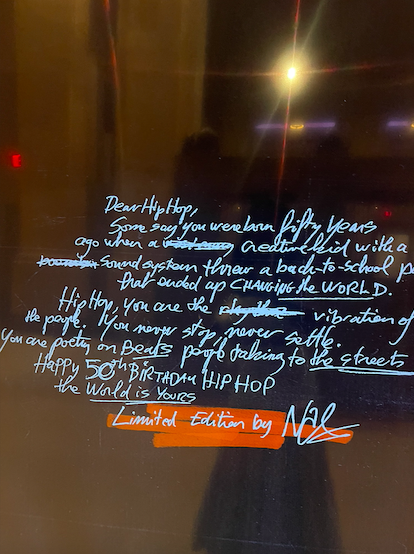 Dear Hip Hop,
Some say you were born fifty years
ago when a creative kid with a
sound system threw a back-to-school p
that ended up CHANGING the WORLD.
Hip Hop, you are the vibration of
the people. You never stop, never settle.
you are poetry on Beats people taking to the streets
HAPPY 50th BIRTHDAY HIP HOP
the World is YOURS
Limited Edition by NAS